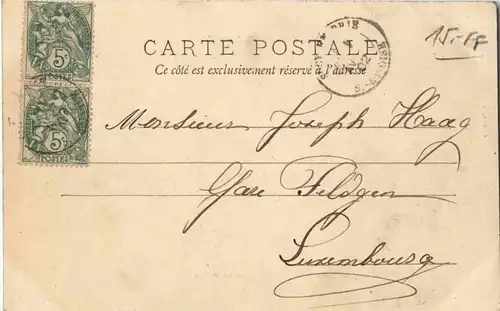 15.- FF
CARTE POSTALE
Ce côté est exclusivement réservé à l'adresse
5c
POSTES
5c
POSTES
Monsieur Joseph Haag
Gare Feldgen
Luxembourg